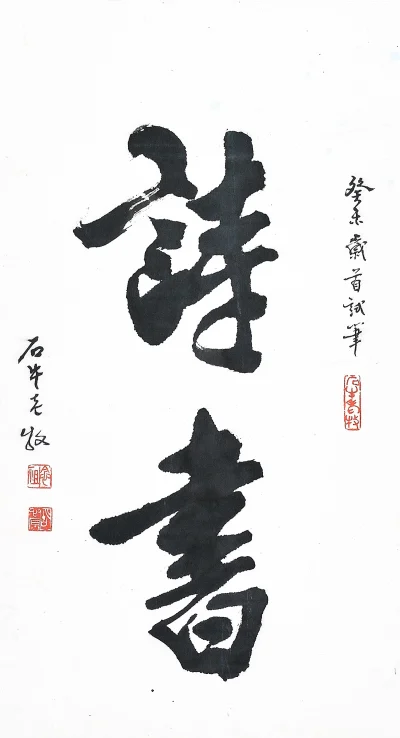 癸未歲首試筆
詩書
石牛老牧